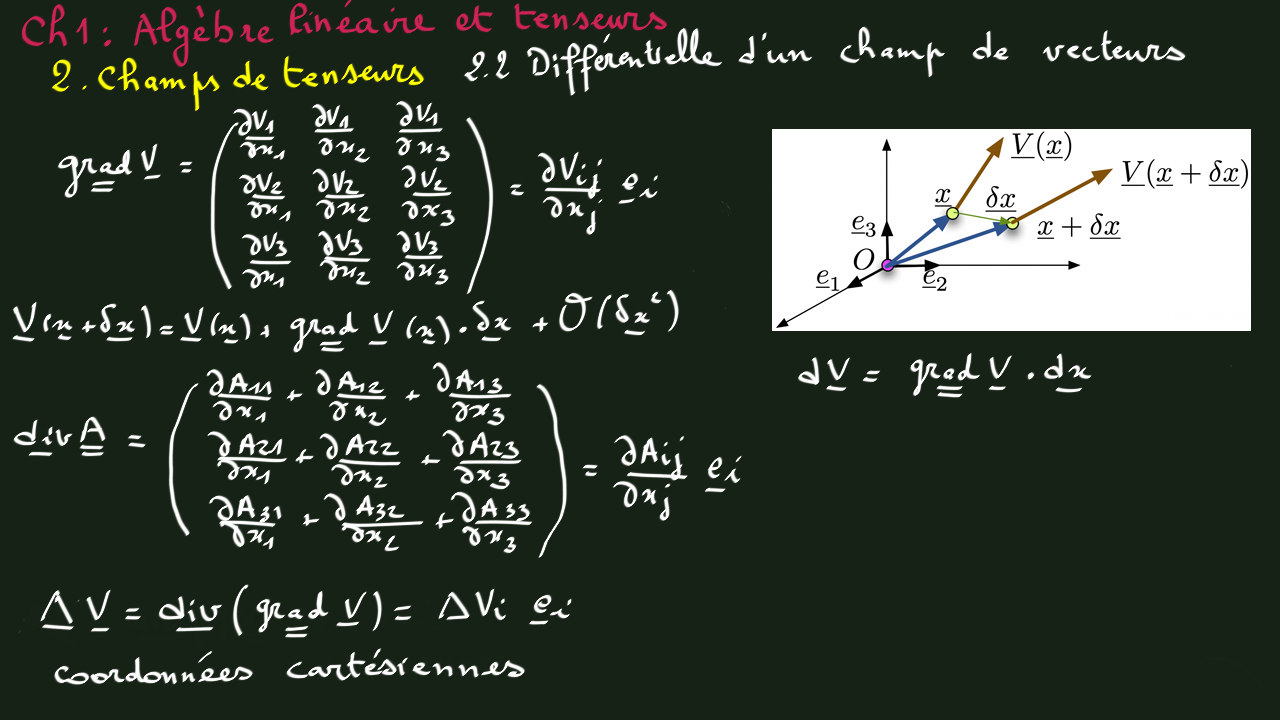 Ch1: Algèbre linéaire et tenseurs
2. Champs de tenseurs 2.2 Différentielle d'un champ de vecteurs
grad V = ( ∂V1/∂x1 ∂V1/∂x2 ∂V1/∂x3
∂V2/∂x1 ∂V2/∂x2 ∂V2/∂x3
∂V3/∂x1 ∂V3/∂x2 ∂V3/∂x3 ) = ∂Vij/∂xj ei
V(x)
V(x + δx)
x δx
x + δx
e3
O
e1 e2
V(x+δx) = V(x) + grad V(x) · δx + O(δx²)
dV = grad V · dx
div A = ( ∂A11/∂x1 + ∂A12/∂x2 + ∂A13/∂x3
∂A21/∂x1 + ∂A22/∂x2 + ∂A23/∂x3
∂A31/∂x1 + ∂A32/∂x2 + ∂A33/∂x3 ) = ∂Aij/∂xj ei
Δ V = div (grad V) = ΔVi ei
coordonnées cartésiennes